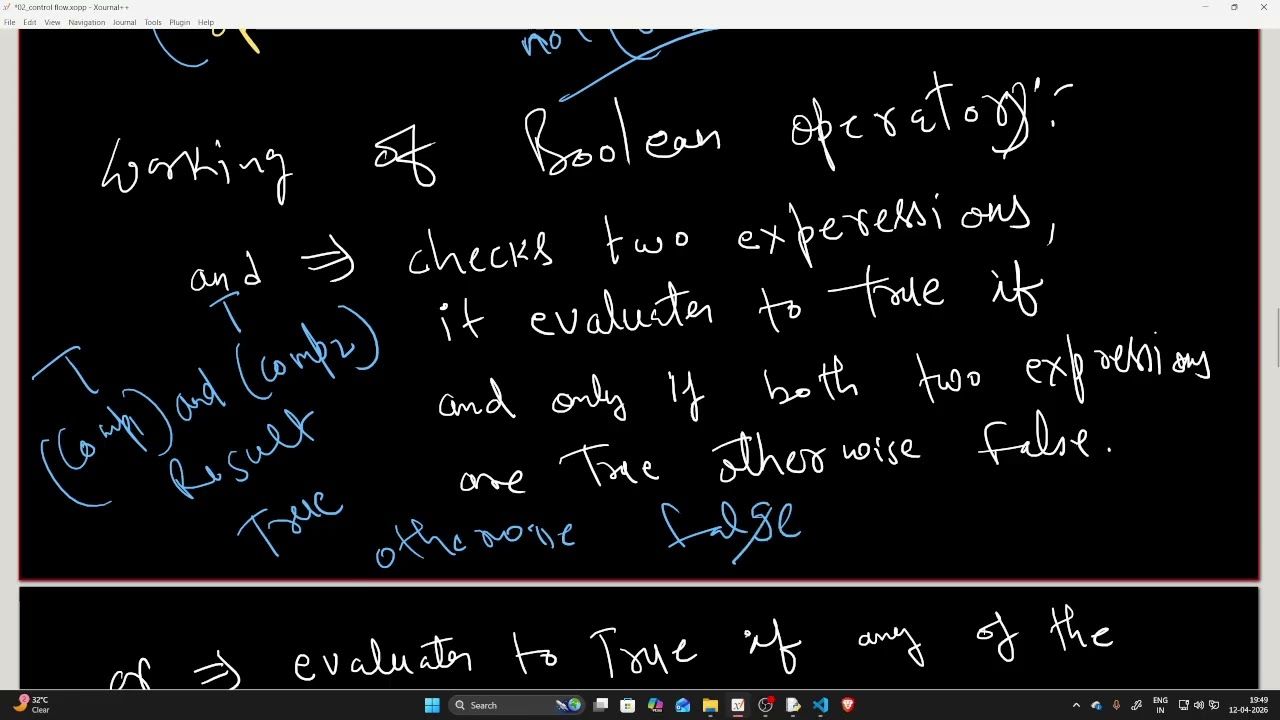 *02_control flow.xopp - Xournal++
File Edit View Navigation Journal Tools Plugin Help
not
working of Boolean operators:-
and ⇒ checks two experessions,
it evaluates to True if
and only if both two expressions
are True otherwise False.
T T
(comp1) and (comp2)
Result
True otherwise False
or ⇒ evaluates to True if any of the
32°C
Clear
Search
ENG
IN
19:49
12-04-2026